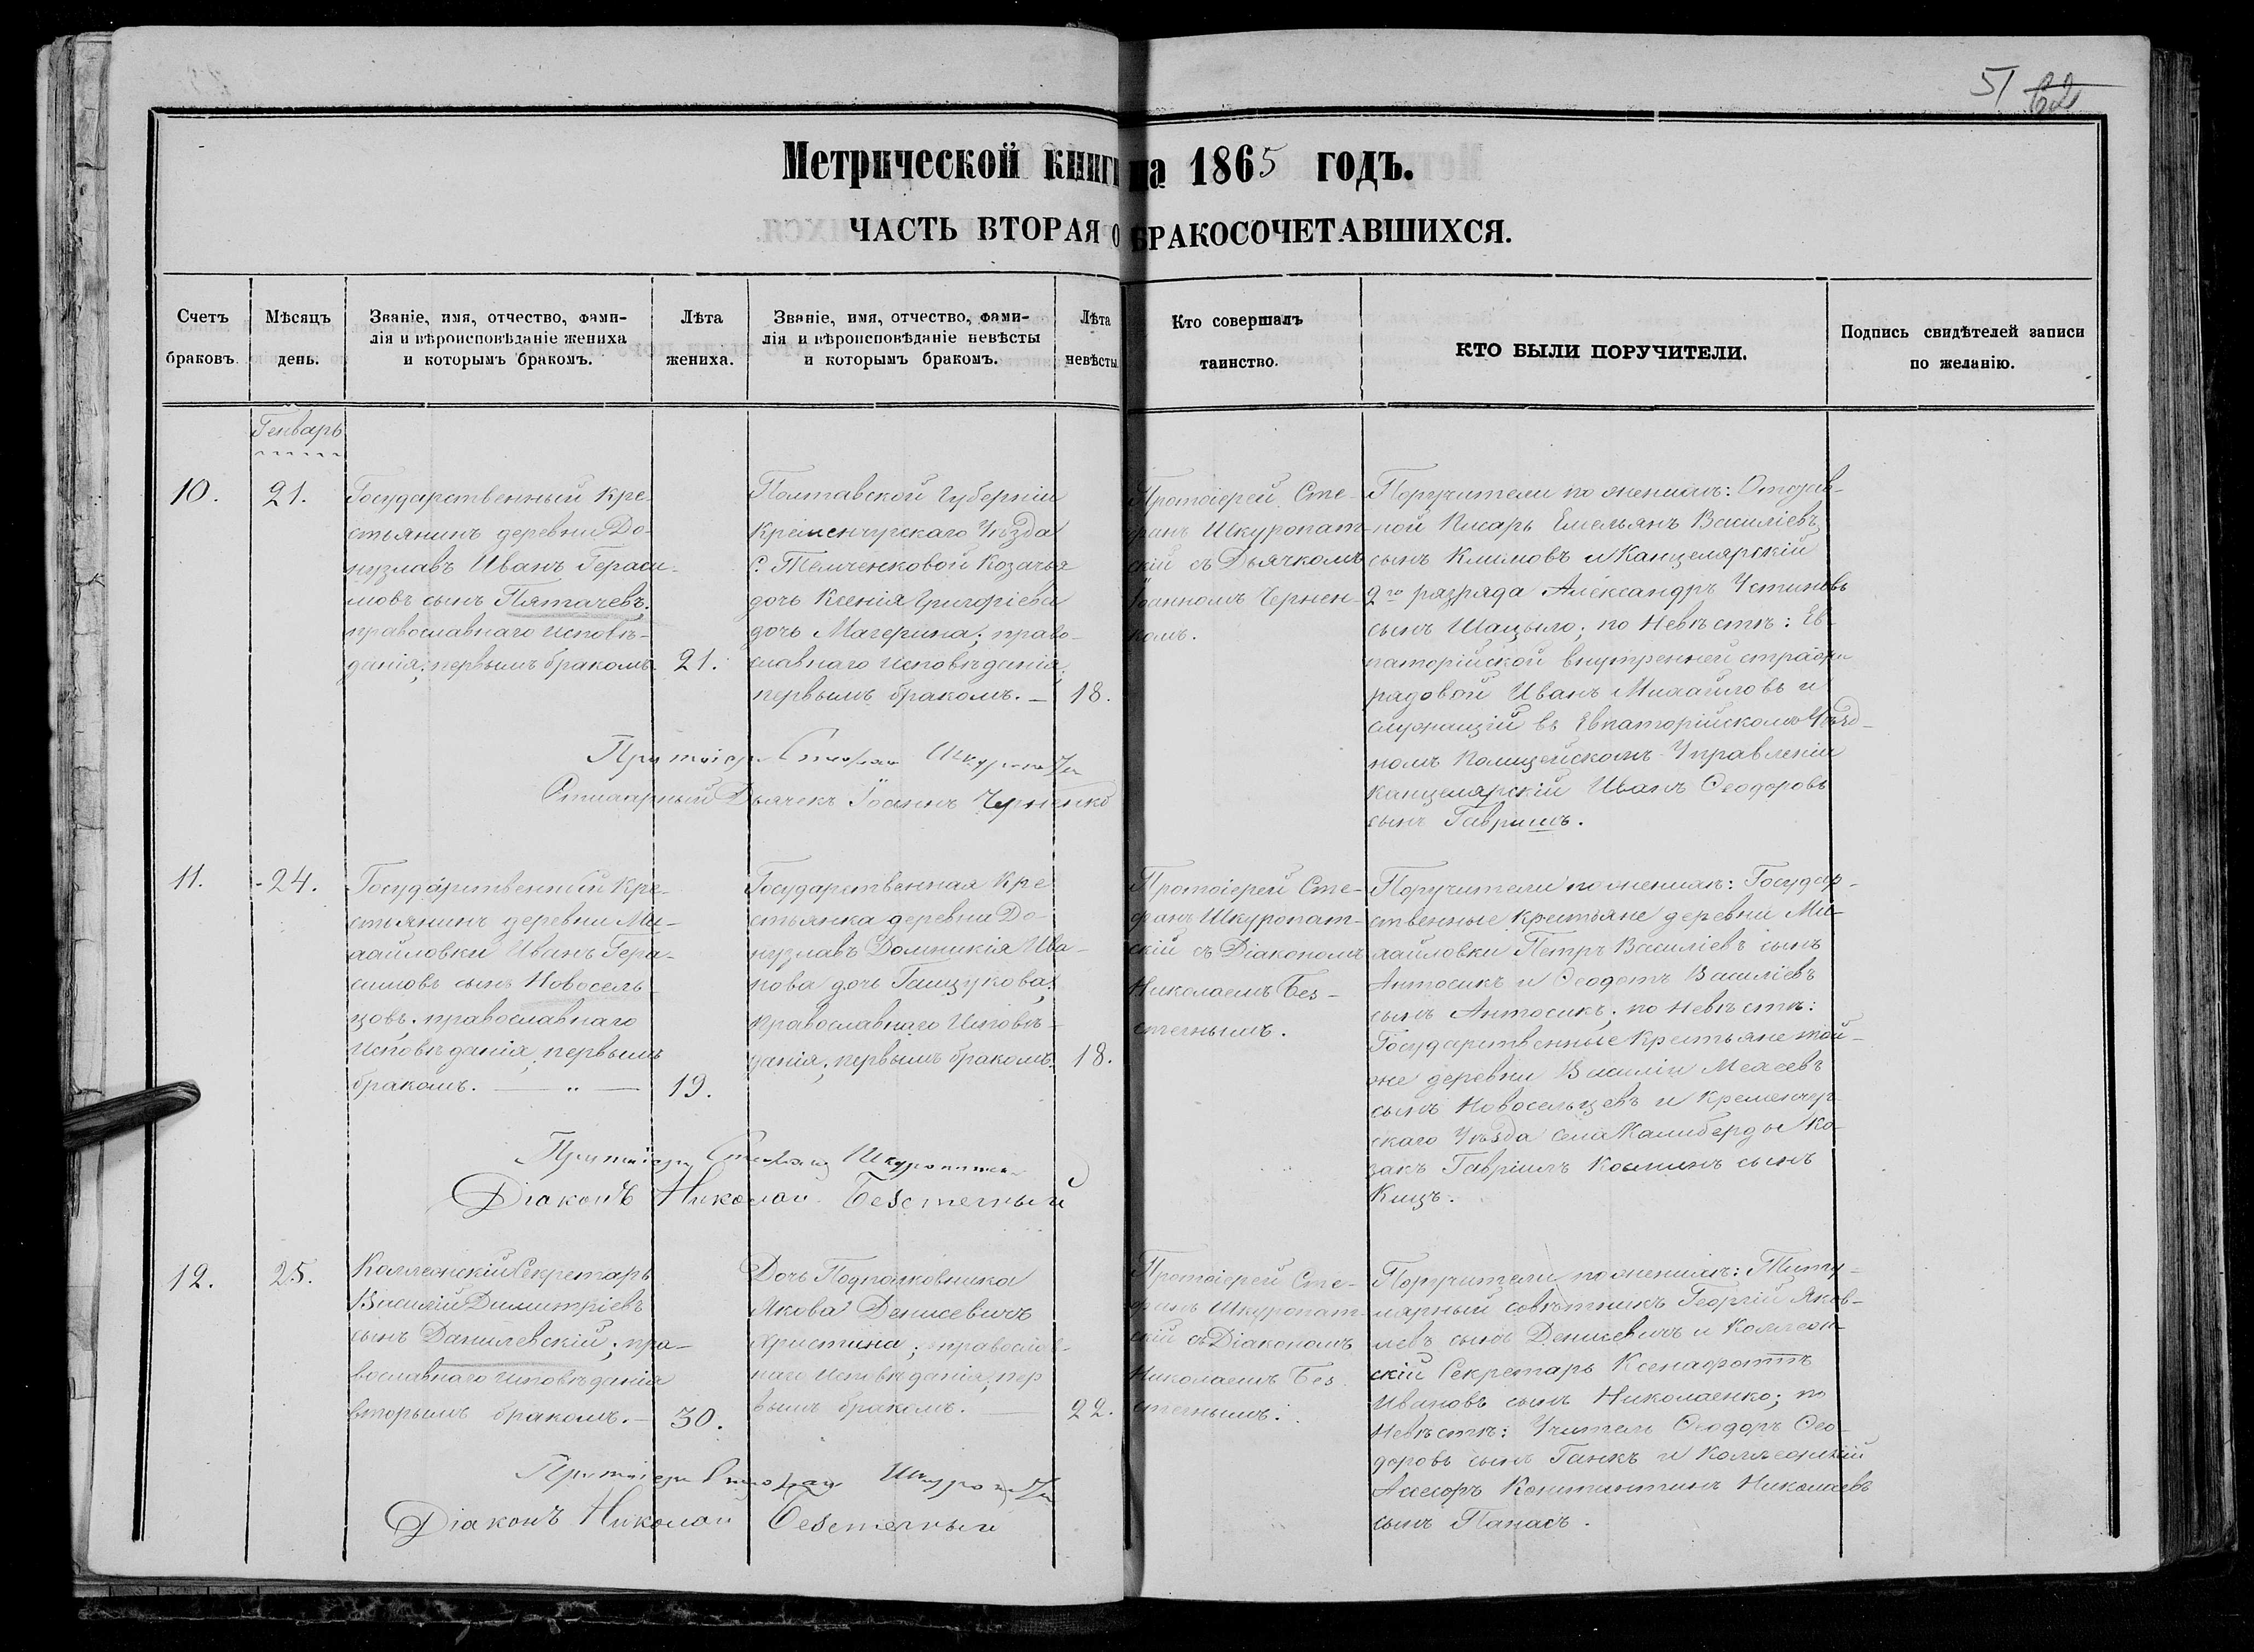 51 62
Метрической книги на 1865 годъ.
ЧАСТЬ ВТОРАЯ О БРАКОСОЧЕТАВШИХСЯ.
Счетъ
браковъ.
Мѣсяцъ
день.
Званіе, имя, отчество, фами-
лія и вѣроисповѣданіе жениха
и которымъ бракомъ.
Лѣта
жениха.
Званіе, имя, отчество, фами-
лія и вѣроисповѣданіе невѣсты
и которымъ бракомъ.
Лѣта
невѣсты
Кто совершалъ
таинство.
КТО БЫЛИ ПОРУЧИТЕЛИ.
Подпись свидѣтелей записи
по желанію.
Генварь
10.
21.
Государственный кре-
стьянинъ деревни До-
нузлавъ Иванъ Гераси-
мовъ сынъ Пятачевъ;
православнаго исповѣ-
данія; первымъ бракомъ
21.
Полтавской Губерніи
Кременчугскаго Уѣзда
С. Козачья
дочь Ксенія Григоріева
дочь Магерина; право-
славнаго исповѣданія;
первымъ бракомъ. —
18.
Протоіерей Сте-
фанъ Шкуропат-
скій съ Дьячкомъ
Іоанномъ Чернен-
комъ.
Поручители по женихѣ: Отстав-
ной Писарь Емельянъ Василіевъ
сынъ Климовъ и Канцелярскій
2го разряда Александръ Устиновъ
сынъ; по Невѣстѣ: Ев-
паторійской внутренней стражи
рядовой Иванъ Михайловъ и
служащій въ Евпаторійскомъ Уѣзд-
номъ Полицейскомъ Управленіи
канцелярскій Иванъ Ѳеодоровъ
сынъ Гавришъ.
Протоіерей Стефан Шкуропат
Дьячекъ Іоаннъ Черненко
11.
24.
Государственный кре-
стьянинъ деревни Ми-
хайловки Иванъ Гера-
симовъ сынъ Новосель-
цовъ, православнаго
Исповѣданія, первымъ
бракомъ. — „ —
19.
Государственная кре-
стьянка деревни До-
нузлавъ Домникія Ива-
нова дочь;
православнаго Исповѣ-
данія; первымъ бракомъ.
18.
Протоіерей Сте-
фанъ Шкуропат-
скій съ Діакономъ
Николаемъ Без-
стечнымъ.
Поручители по женихѣ: Государ-
ственные крестьяне деревни Ми-
хайловки Петръ Василіевъ сынъ
Антосикъ и Ѳеодотъ Василіевъ
сынъ Антосикъ; по Невѣстѣ:
Государственные крестьяне той-
же деревни Василій
сынъ Новосельцевъ и Кременчуг-
скаго Уѣзда села Калиберды ко-
закъ Гавріилъ Косминъ сынъ
Кицъ.
Протоіерей Стефан Шкуропат
Діаконъ Николай Безстечный
12.
25.
Коллежскій Секретарь
Василій Димитріевъ
сынъ Данилевскій; пра-
вославнаго исповѣданія
вторымъ бракомъ. —
30.
Дочь Подполковника
Якова Денисевичъ
Христина; православ-
наго исповѣданія; пер-
вымъ бракомъ. —
22.
Протоіерей Сте-
фанъ Шкуропат-
скій съ Діакономъ
Николаемъ Без-
стечнымъ.
Поручители по женихѣ: Титу-
лярный совѣтникъ Георгій Яков-
левъ сынъ Денисевичъ и Коллеж-
скій Секретарь Ксенофонтъ
Ивановъ сынъ Николаенко; по
Невѣстѣ: Учитель Ѳеодоръ Ѳео-
доровъ сынъ Ганкъ и Коллежскій
Ассесоръ Константинъ Николаевъ
сынъ Панасъ.
Протоіерей Стефан Шкуропат
Діаконъ Николай Безстечный